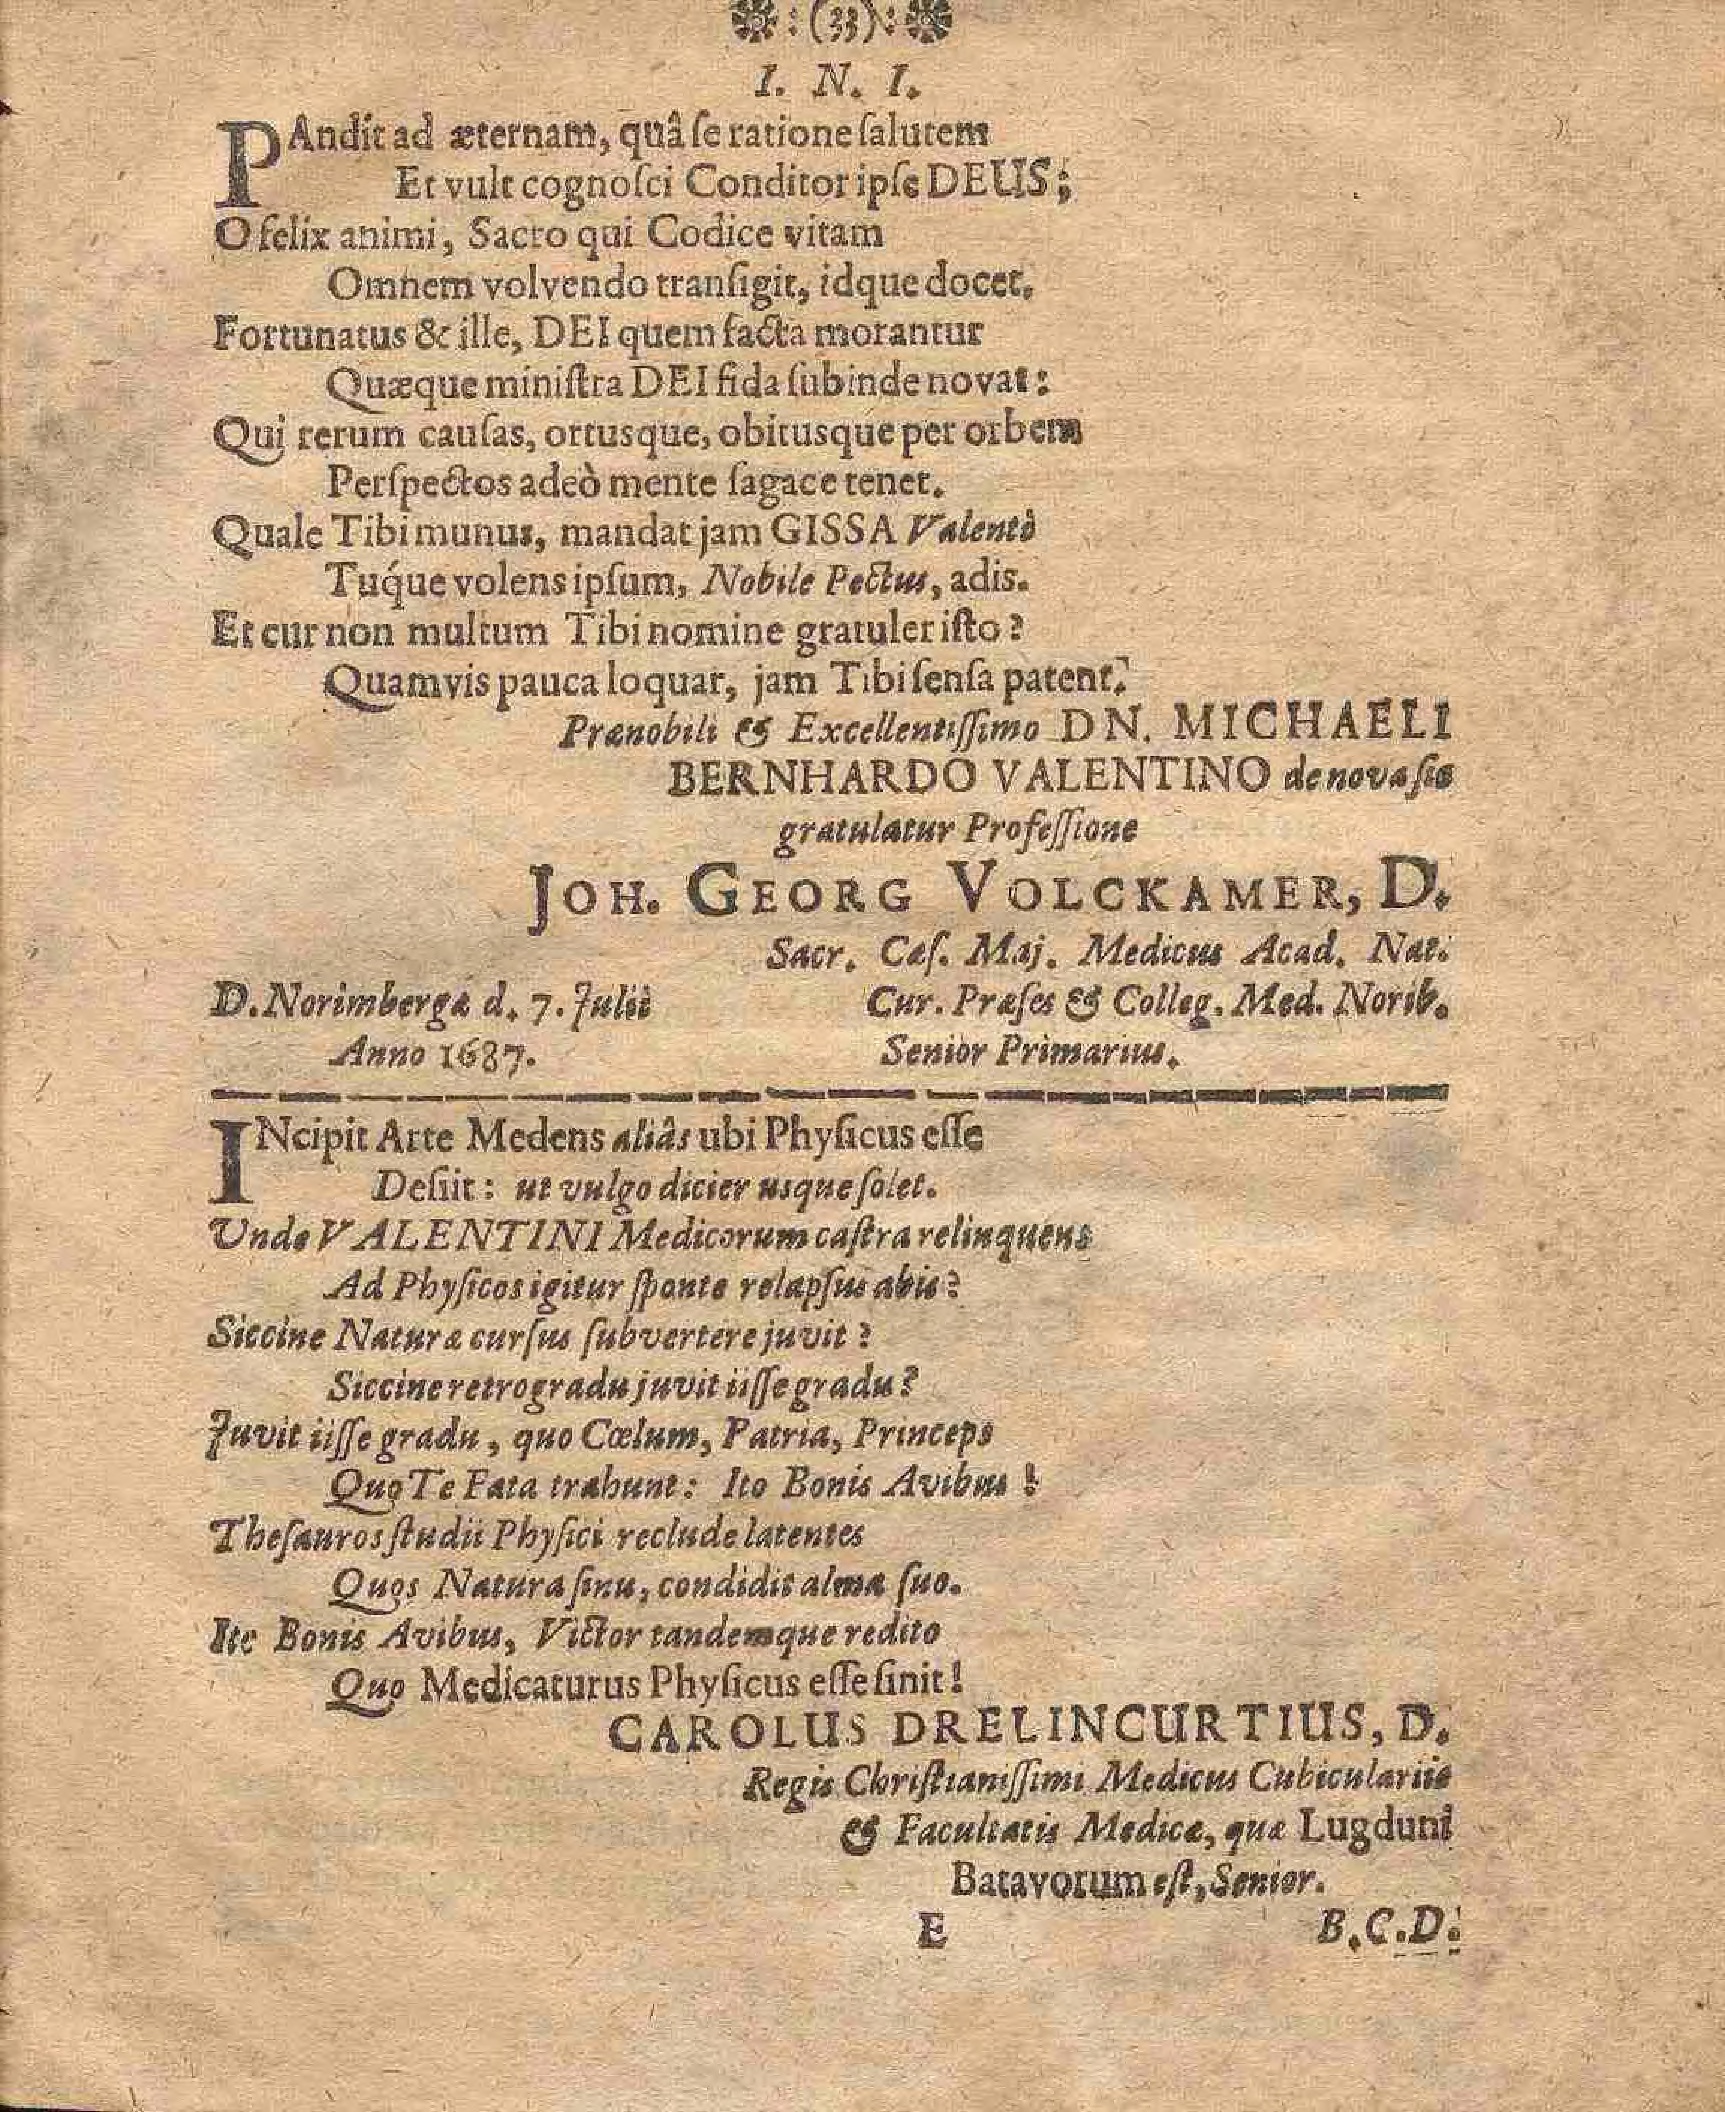 :(33):
I. N. I.
PAndit ad æternam, quâ ſe ratione ſalutem
Et vult cognoſci Conditor ipſe DEUS;
O felix animi, Sacro qui Codice vitam
Omnem volvendo tranſigit, idque docet.
Fortunatus & ille, DEI quem facta morantur
Quæque miniſtra DEI fida ſubinde novat:
Qui rerum cauſas, ortusque, obitusque per orbem
Perſpectos adeò mente ſagace tenet.
Quale Tibi munus, mandat jam GISSA Valentò
Tuq́ue volens ipſum, Nobile Pectus, adis.
Et cur non multum Tibi nomine gratuler iſto?
Quamvis pauca loquar, jam Tibi ſenſa patent.
Prænobili & Excellentiſſimo DN. MICHAELI
BERNHARDO VALENTINO de nova ſia
gratulatur Profeſſione
JOH. GEORG VOLCKAMER, D.
Sacr. Cæſ. Maj. Medicus Acad. Nat.
D. Norimbergæ d. 7. Julii Cur. Præſes & Colleg. Med. Norib.
Anno 1687. Senior Primarius.
INcipit Arte Medens aliâs ubi Phyſicus eſſe
Deſiit: ut vulgo dicier usque ſolet.
Unde VALENTINI Medicorum caſtra relinquens
Ad Phyſicos igitur ſponte relapſus abis?
Siccine Naturæ curſus ſubvertere juvit?
Siccine retrogradu juvit iiſſe gradu?
Juvit iiſſe gradu, quo Cœlum, Patria, Princeps
Quo Te Fata trahunt: Ito Bonis Avibus!
Theſauros ſtudii Phyſici reclude latentes
Quos Natura ſinu, condidit alma ſuo.
Ite Bonis Avibus, Victor tandemque redito
Quo Medicaturus Phyſicus eſſe ſinit!
CAROLUS DRELINCURTIUS, D.
Regis Chriſtianiſſimi Medicus Cubiculariis
& Facultatis Medicæ, quæ Lugduni
Batavorum eſt, Senior.
E B.C.D.